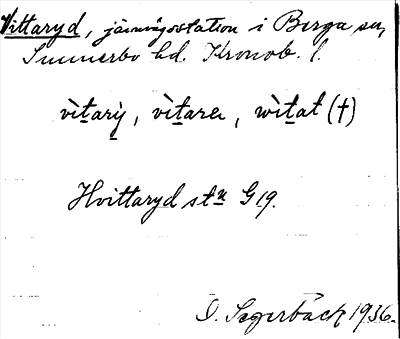 Vittaryd, järnvägsstation i Berga sn,
Sunnerbo hd. Kronob. l.
vìtarỳ, vìtarea, wìtat (†)
Hvittaryd stn G 19.
O. Segerbäck 1936.